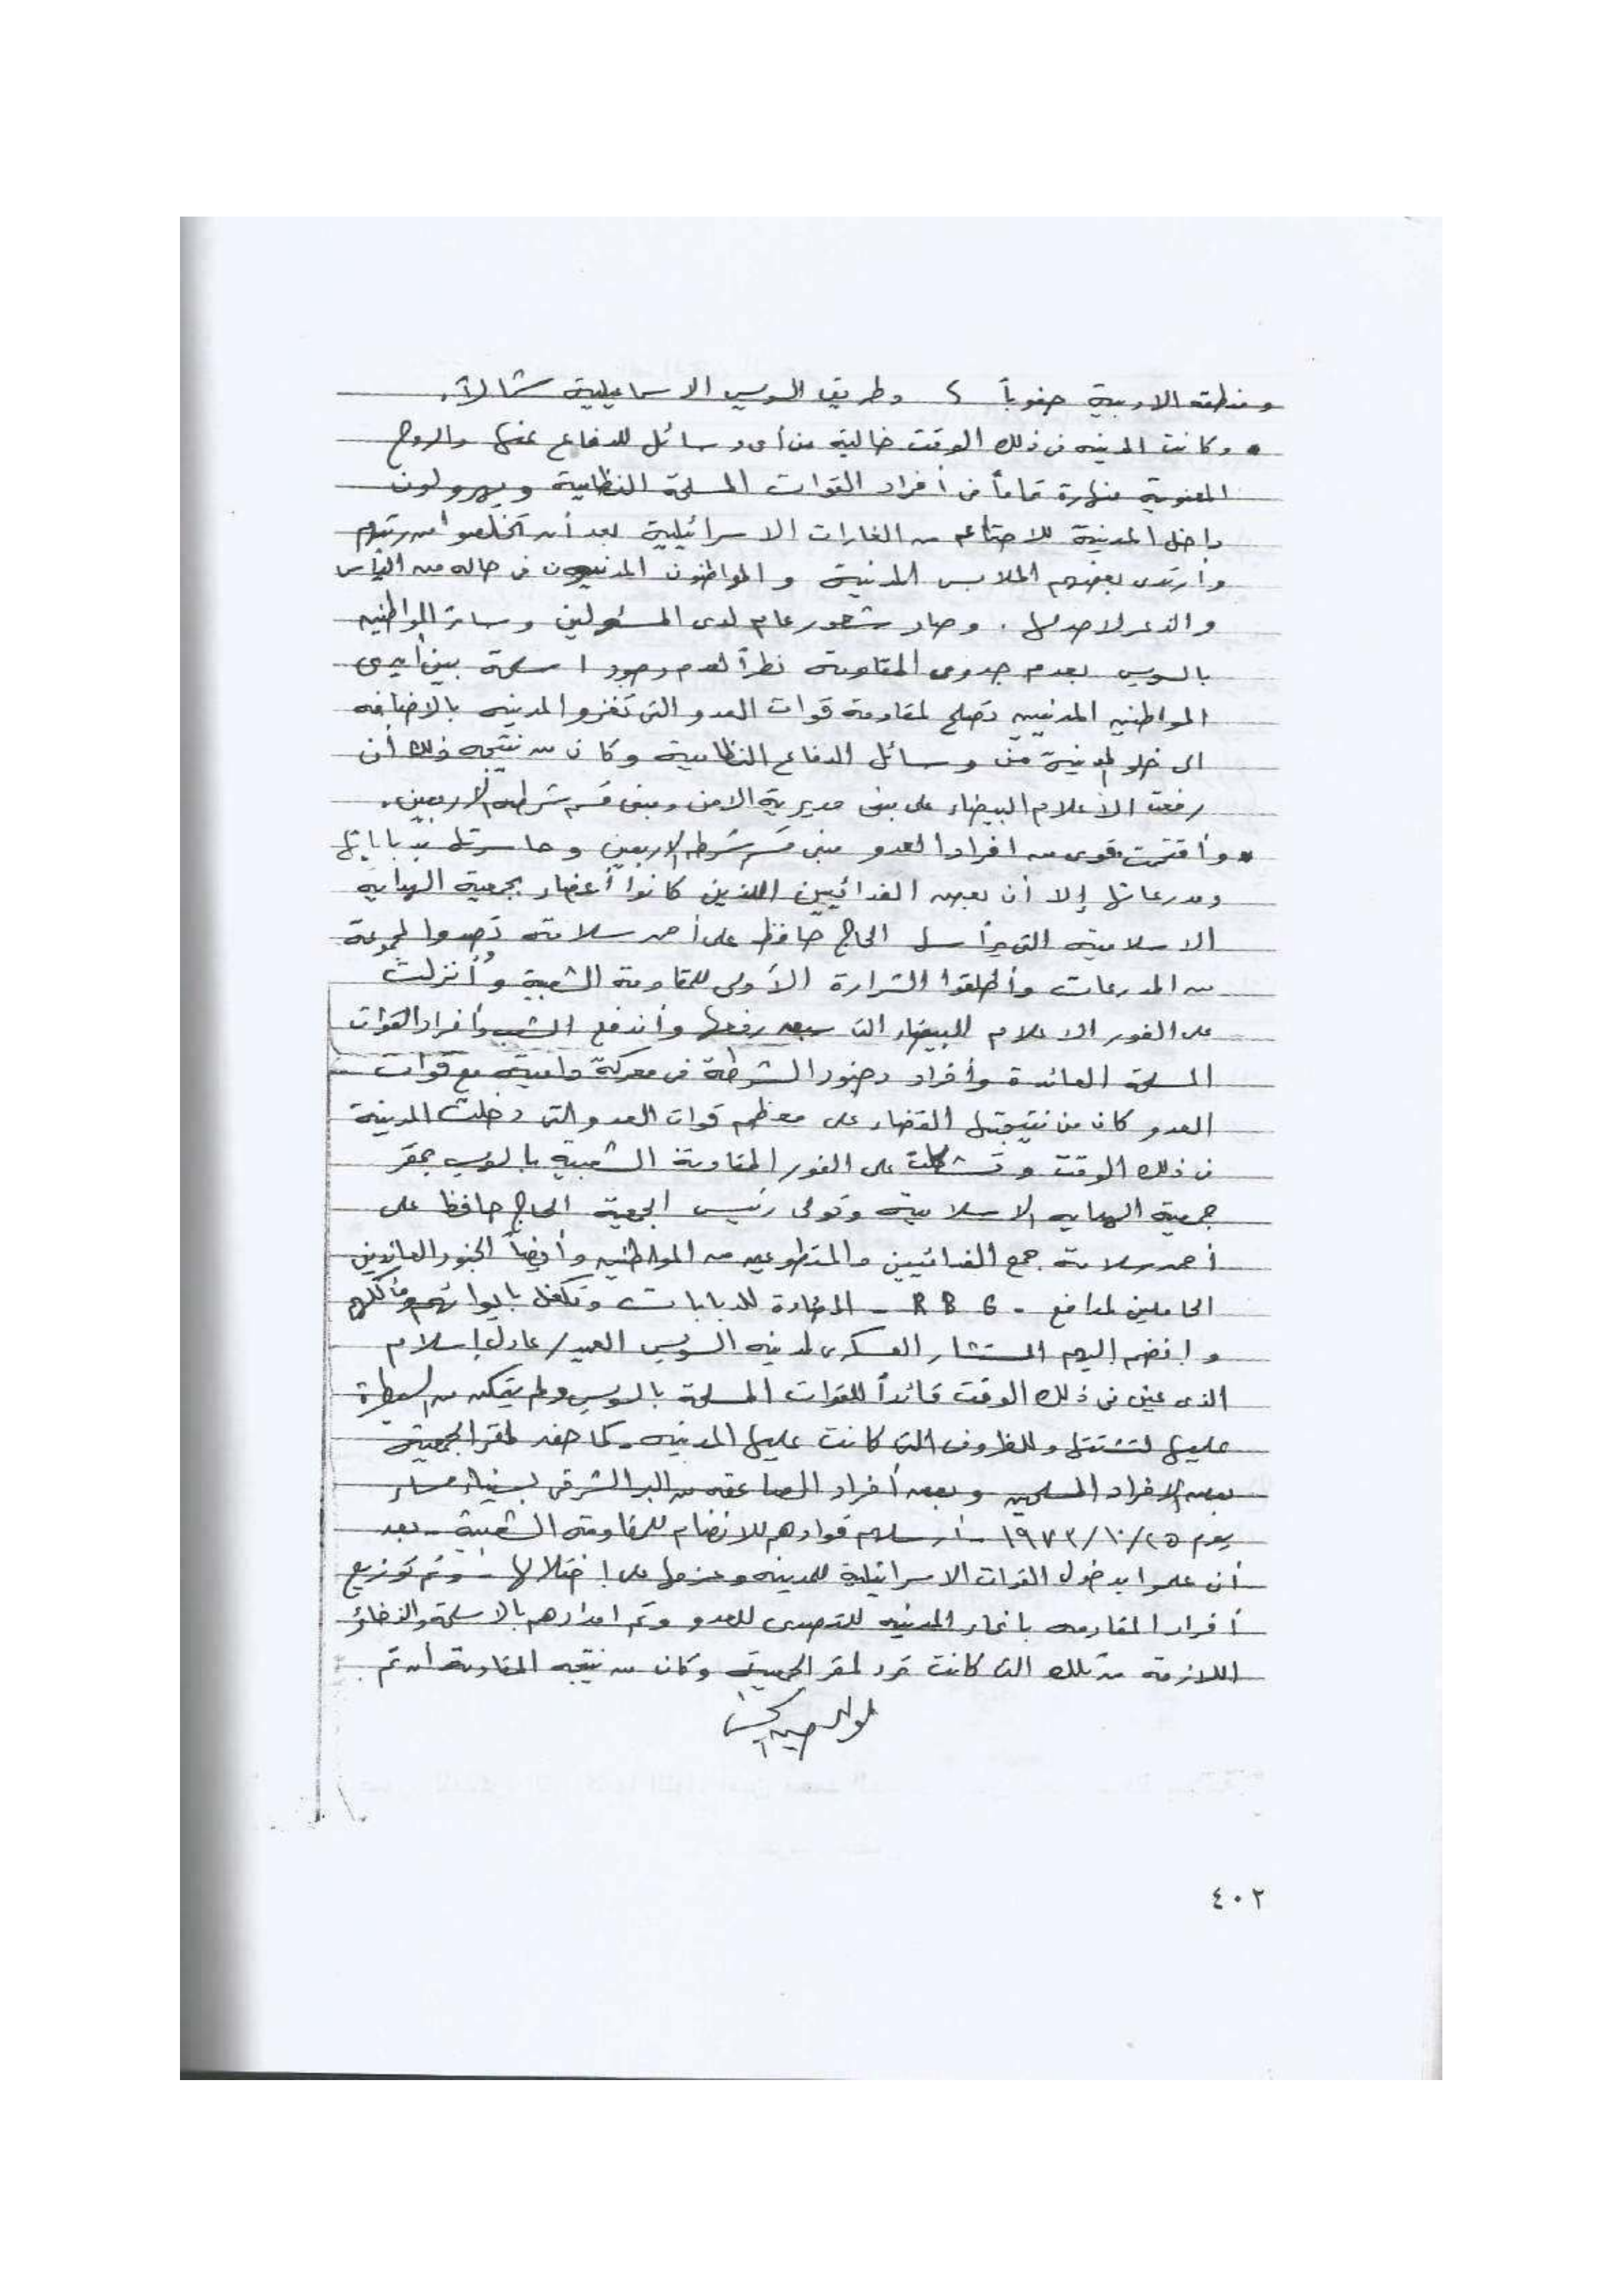 ومنطقة الادبية جنوباً ، وطريق السويس الاسماعيلية شمالاً.
• وكانت المدينه فى ذلك الوقت خالية من أى وسائل للدفاع عنها والروح
المعنوية منهارة تماماً من أفراد القوات المسلحة النظامية ويهرولون
داخل المدينة للاحتماء من الغارات الاسرائيلية بعد أن تخلصوا من رتبهم
وارتدى بعضهم الملابس المدنية والمواطنون المدنيون فى حاله من اليأس
والذعر لا حد لها . وصار شعور عام لدى المسئولين وسائر المواطنين
بالسويس بعدم جدوى المقاومة نظراً لعدم وجود اسلحة بين أيدى
المواطنين المدنيين تصلح لمقاومة قوات العدو التى تغزو المدينه بالاضافه
الى خلو المدينة من وسائل الدفاع النظامية وكان من نتيجه ذلك أن
رفعت الأعلام البيضاء على مبنى مديرية الامن ومبنى قسم شرطة الأربعين.
• وأقتحمت قوى من افراد العدو مبنى قسم شرطه الاربعين وحاصرتها بدباباتها
ومدرعاتها إلا أن بعض الفدائيين اللذين كانوا أعضاء بجمعية الهداية
الاسلامية التى يرأسها الحاج حافظ على أحمد سلامة تصدوا لمجموعة
من المدرعات وأطلقوا الشرارة الأولى للمقاومة الشعبية وأُنزلت
على الفور الاعلام البيضاء التى سبق رفعها وأندفع الشعب وأفراد القوات
المسلحة العائدة وأفراد وجنود الشرطة فى معركة دامية مع قوات
العدو كان من نتيجتها القضاء على معظم قوات العدو التى دخلت المدينة
فى ذلك الوقت وتشكلت على الفور المقاومة الشعبية بالسويس بمقر
جمعية الهدايه الاسلامية وتولى رئيس الجمعية الحاج حافظ على
أحمد سلامة جمع الفدائيين والمتطوعين من المواطنين وأيضاً الجنود العائدين
الحاملين لمدافع - R B G - المضادة للدبابات وتكفل بايوائهم ومأكلهم
وانضم إليهم المستشار العسكرى لمدينه السويس العميد/ عادل إسلام
الذى عين فى ذلك الوقت قائداً للقوات المسلحة بالسويس ولم يتمكن من السيطرة
عليها لتشتتها وللظروف التى كانت عليها المدينه. كما حضر لمقر الجمعية
بعض الافراد المسلحين وبعض أفراد الصاعقه من البر الشرقى بسيناء مساء
يوم ١٩٧٣/١٠/٢٥ - أرسلهم قوادهم للانضمام للمقاومة الشعبية - بعد
أن علموا بدخول القوات الاسرائيلية للمدينه وعزمها على إحتلالها - وتم توزيع
أفراد المقاومه بانحاء المدينه للتصدى للعدو وتم امدادهم بالاسلحة والذخائر
اللازمة من تلك التى كانت ترد لمقر الجمعية وكان من نتيجه المقاومة أن تم
٤٠٢